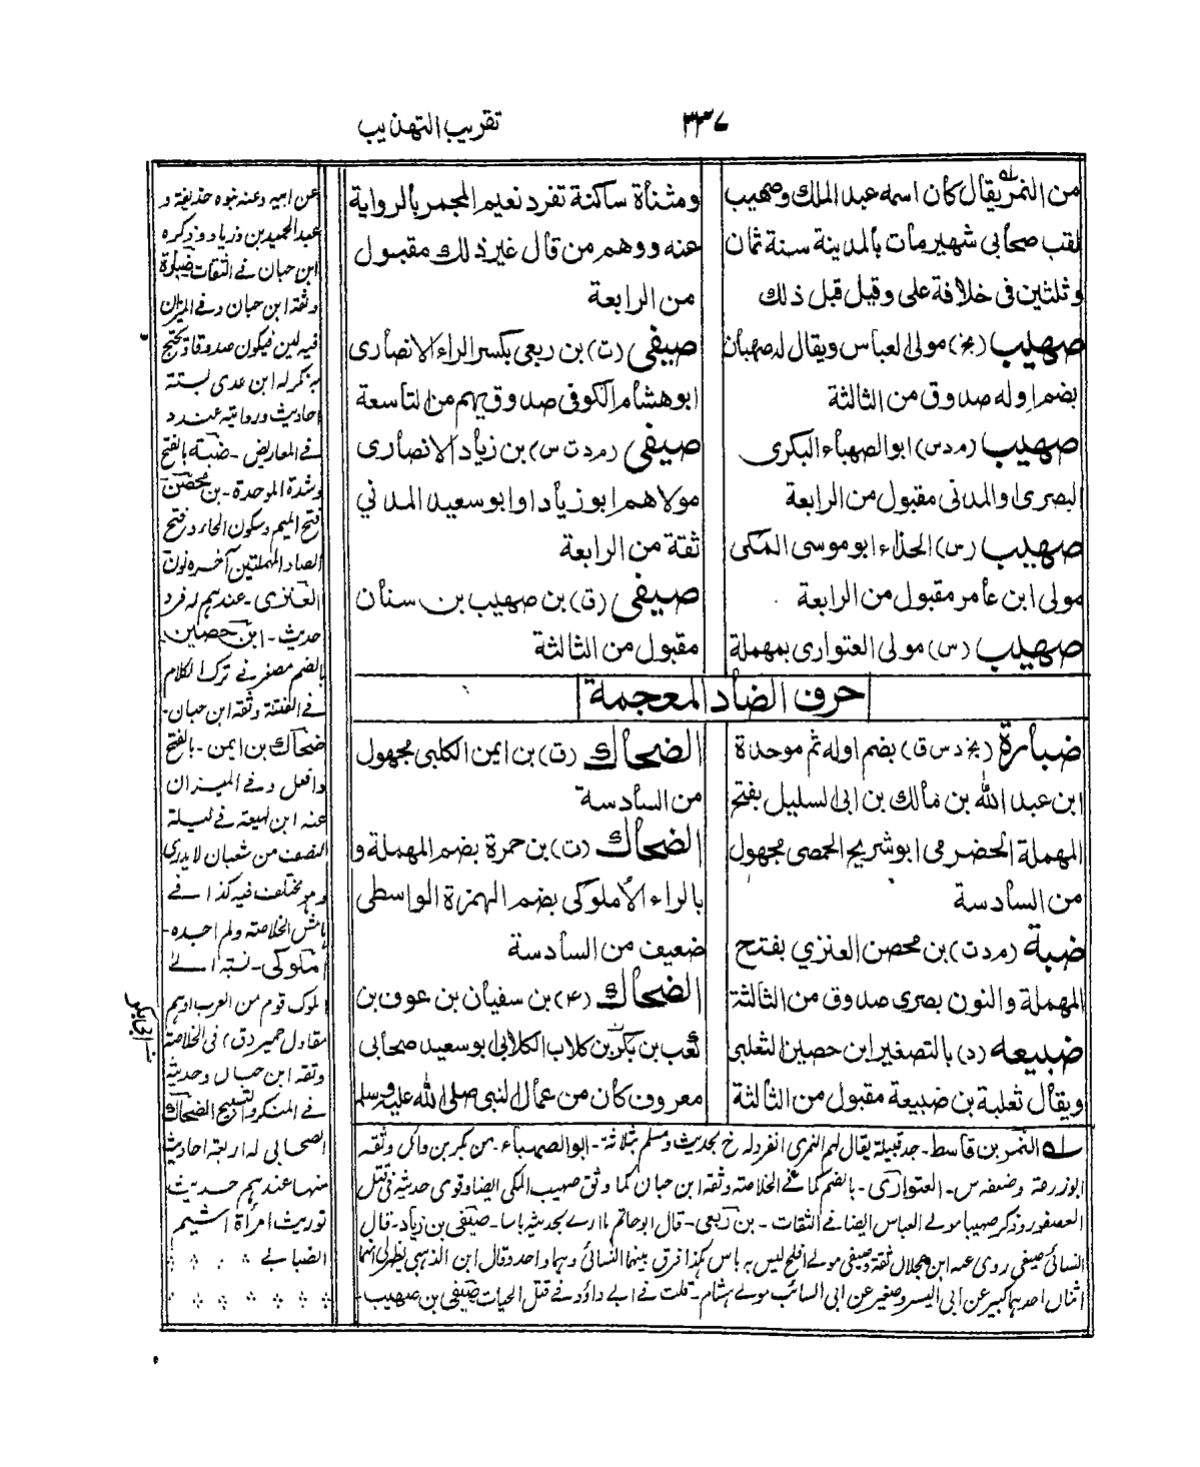 ۳۳۷
تقريب التهذيب
من النمر يقال كان اسمه عبد الملك وصهيب
لقب صحابى شهير مات بالمدينة سنة ثمان
وثلثين فى خلافة على وقيل قبل ذلك
صهيب (بخ) مولى العباس ويقال له صهبان
بضم اوله صدوق من الثالثة
صهيب (م د س) ابو الصهباء البكرى
البصرى او المدنى مقبول من الرابعة
صهيب (س) الحذاء ابو موسى المكى
مولى ابن عامر مقبول من الرابعة
صهيب (س) مولى العتوارى بمهملة
ومثناة ساكنة تفرد نعيم المجمر بالرواية
عنه ووهم من قال غير ذلك مقبول
من الرابعة
صيفى (ت) بن ربعى بكسر الراء الانصارى
ابو هشام الكوفى صدوق يهم من التاسعة
صيفى (م د ت س) بن زياد الانصارى
مولاهم ابو زياد او ابو سعيد المدني
ثقة من الرابعة
صيفى (ق) بن صهيب بن سنان
مقبول من الثالثة
حرف الضاد المعجمة
ضبارة (بخ د س ق) بضم اوله ثم موحدة
ابن عبد الله بن مالك بن ابى السليل بفتح
المهملة الحضرمى ابو شريح الحمصى مجهول
من السادسة
ضبة (م د ت) بن محصن العنزي بفتح
المهملة والنون بصرى صدوق من الثالثة
ضبيعه (د) بالتصغير ابن حصين الثعلبى
ويقال ثعلبة بن ضبيعة مقبول من الثالثة
الضحاك (ق) بن ايمن الكلبى مجهول
من السادسة
الضحاك (ت) بن حمرة بضم المهملة و
بالراء الأملوكى بضم الهمزة الواسطى
ضعيف من السادسة
الضحاك (٤) بن سفيان بن عوف بن
كعب بن بكر بن كلاب الكلابى ابو سعيد صحابى
معروف كان من عمال النبى صلى الله عليه وسلم
له النمر بن قاسط - جد قبيلة يقال لهم النمرى انفرد له خ بحديث ومسلم بثلاثة - ابو الصهباء - من بكر بن وائل وثقه
ابو زرعة وضعفه س - العتوارى - بالضم كما فى الخلاصة وثقه ابن حبان كما وثق صهيب المكى ايضا وقوى حديثه فى قتل
العصفور وذكر صهيبا مولى العباس ايضا فى الثقات - بن ربعى - قال ابو حاتم ما ارى بحديثه باسا - صيفى بن زياد - قال
النسائى صيفى روى عنه ابن عجلان ثقة وصيفى مولى افلح ليس به باس كذا فرق بينهما النسائى وهما واحد وقال ابن الذهبى يظهر لى انهما
اثنان احدهما كبير عن ابى اليسر وصغير عن ابى السائب مولى هشام - قلت فى ابى داؤد فى قتل الحيات صيفى بن صهيب -
عن ابيه وعنه بنوه حذيفة و
عبد الحميد بن زياد وذكره
ابن حبان فى الثقات ضبارة
وثقه ابن حبان وفى الميزان
فيه لين فيكون صدوقا
ذكر له ابن عدى ستة
احاديث ورواية عند د
فى المعاريض - ضبة بالفتح
وشدة الموحدة - بن محصن
فتح الميم وسكون الحاء وفتح
الصاد المهملتين آخره نون
العنزى - عندهم له فرد
حديث - ابن حصين
بالضم مصغر فى ترك الكلام
فى الفتنة وثقه ابن حبان -
ضحاك بن ايمن - بالفتح
وافعل وفى الميزان
عنه ابن لهيعة فى ليلة
النصف من شعبان لا يدرى
ومختلف فيه كذا فى
هامش الخلاصة ولم اجده -
املوكى - نسبة الى
املوك قوم من العرب او هم
مقاول حمير (ق) فى الخلاصة
وثقه ابن حبان وحديثه
فى المنكر والتسبيح الضحاك
الصحابى له اربعة احاديث
منها عندهم حديث
توريث امرأة اشيم
الضبابى